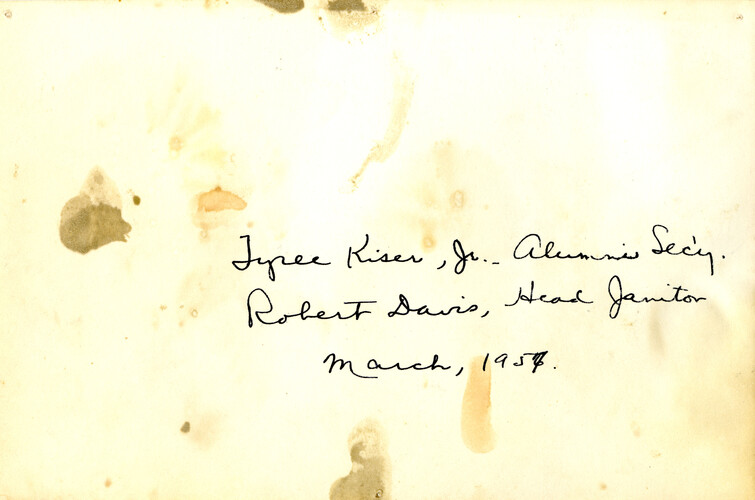 Tyree Kiser, Jr. - Alumni Sec'y.
Robert Davis, Head Janitor
March, 1957.